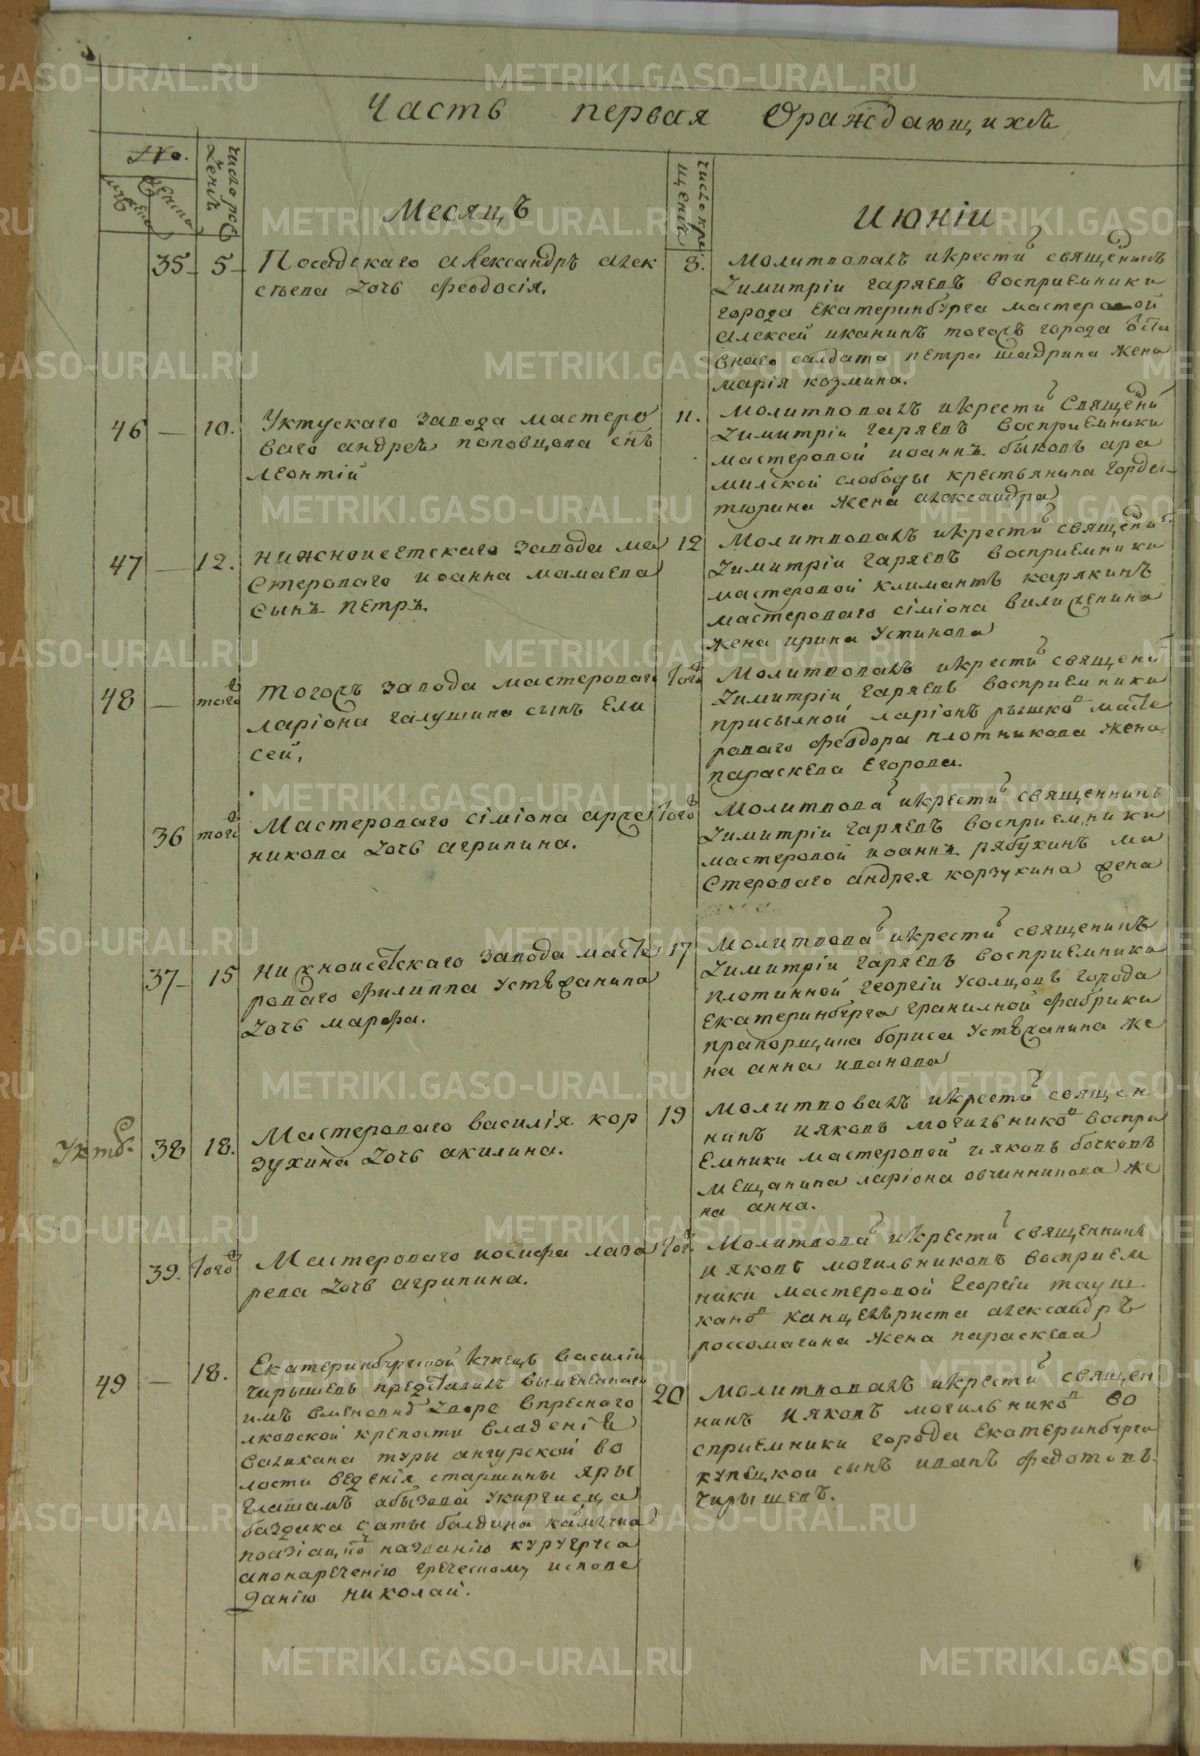 Часть первая Ораждающихсѧ
No.
число рож
дениѧ
Месяцъ
число кре
щениѧ
Июніи
35 5 Посадскаго Александръ алек
сѣева дочь феодосія.
8. молитвовалъ икрестилъ священникъ
димитріи гаряевъ восприемники
города екатеринбурга мастеровой
алексей иканинъ тогожъ города
салдата петра шадрина жена
марія козмина.
46 — 10. Уктускаго завода мастеро
ваго андрея поповцова снъ
леонтій
11. молитвовалъ икрестилъ священи
димитріи гаряевъ восприемники
мастеровой иоаннъ быковъ ара
милской слободы крестьянина гордеи
тюрина жена александра
47 — 12. нижноисетскаго завода ма
стероваго иоанна мамаева
сынъ петръ.
12 молитвовалъ икрестилъ священи
димитріи гаряевъ восприемники
мастеровой климантъ карякинъ
мастероваго сіміона
жена ирина устинова
48 — того тогожъ завода мастероваго
ларіона галушина сынъ ели
сей.
того молитвовалъ икрестилъ священи
димитріи гаряевъ восприемники
присылной ларіонъ рышковъ масте
роваго феодора плотникова жена
параскева Егорова.
36 того Мастероваго сіміона
никова дочь агрипина.
того молитвова икрестилъ священникъ
димитріи гаряевъ восприемники
мастеровой иоаннъ рябухинъ ма
стероваго андрея корзухина жена
37 15 нижноисетскаго завода масте
роваго филиппа устюжанина
дочь марфа.
17 молитвова икрестилъ священикъ
димитріи гаряевъ восприемники
плотинной георгіи усолцовъ города
екатеринбурга гранилной фабрики
прапорщика бориса устюжанина же
на анна иванова
Укту. 38 18. Мастероваго василія кор
зухина дочь акилина.
19 молитвовалъ икрестилъ священ
никъ Ияковъ могильниковъ воспри
емники мастеровой ияковъ бочковъ
мещанина ларіона овчинникова же
на анна.
39. того Мастероваго иосифа лаза
рева дочь агрипина.
того молитвова икрестилъ священникъ
Ияковъ могильниковъ восприем
ники мастеровой георгіи
кановъ канцеляриста александръ
россомагина жена параскева
49 — 18. Екатеринбургской купецъ василіи
чирышевъ представилъ вымененаго
имъ вменовно дворе впресного
лковской крепости владеніе
валихана туры ангурской во
лости веденія старшины яры
киргисца
баздика саты балдина
названію
апонаречению греческому испове
данію николай.
20 молитвовалъ икрестилъ священ
никъ Ияковъ могильниковъ во
сприемники города екатеринбурга
купецкой сынъ иванъ федотовъ
чирышевъ.